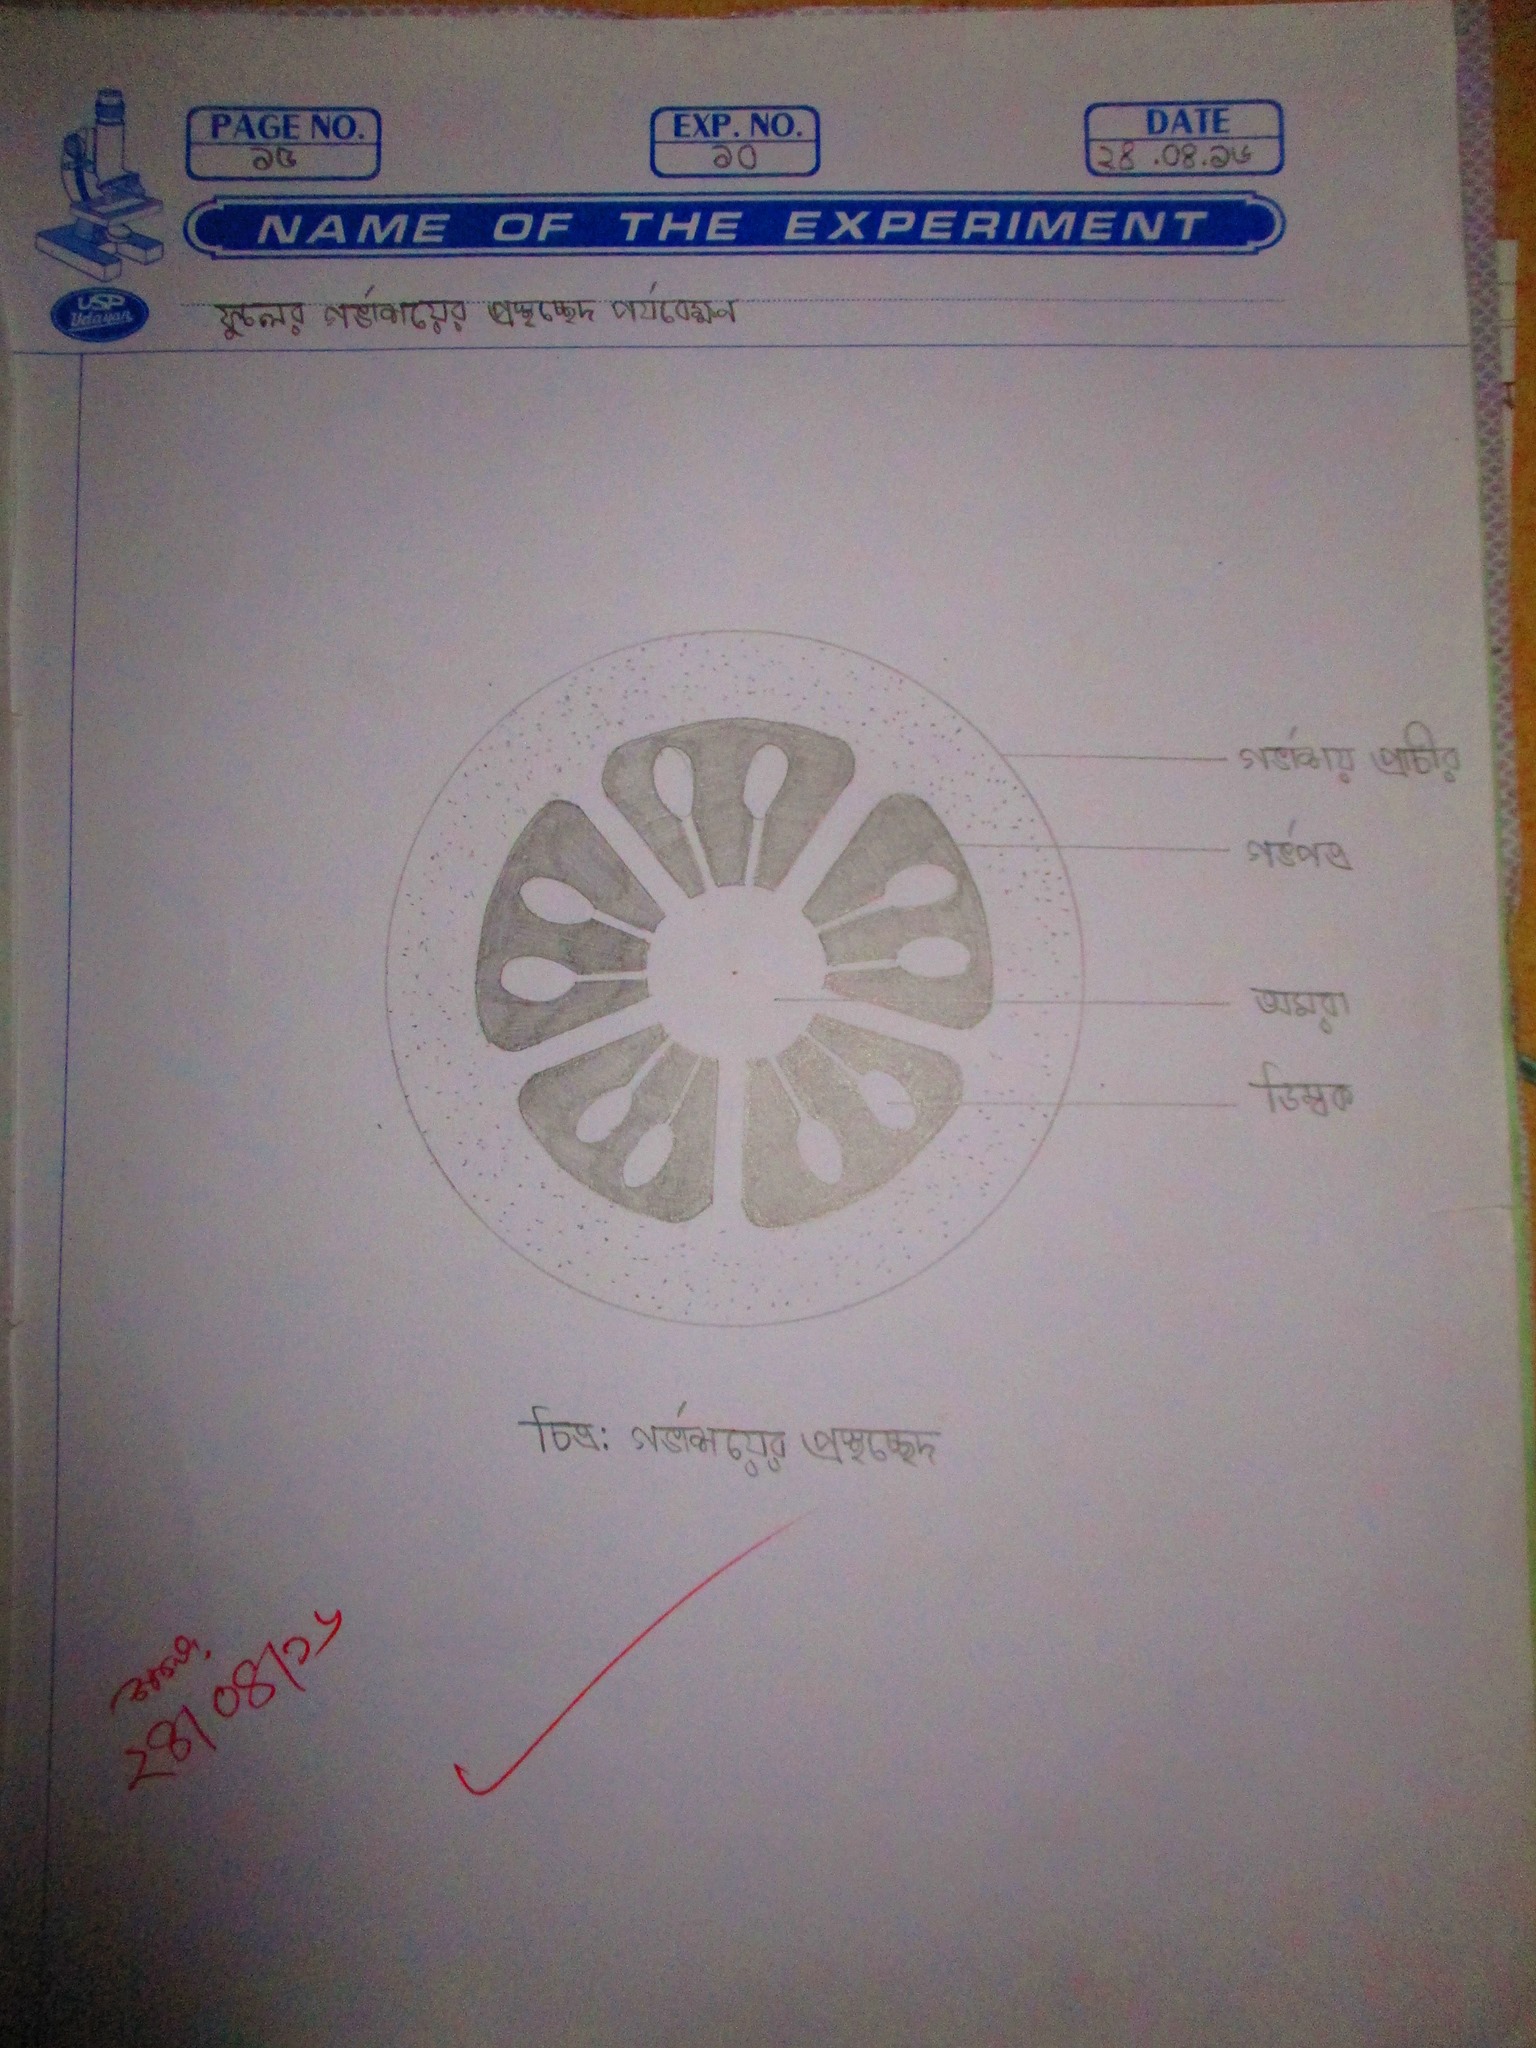 PAGE NO. EXP. NO. DATE
১৫ ১০ ২৪.০৪.১৬
NAME OF THE EXPERIMENT
USP
Udayan
ফুলের গর্ভাশয়ের প্রস্থচ্ছেদ পর্যবেক্ষণ
গর্ভাশয় প্রাচীর
গর্ভপত্র
অমরা
ডিম্বক
চিত্র: গর্ভাশয়ের প্রস্থচ্ছেদ
২৪/০৪/১৬